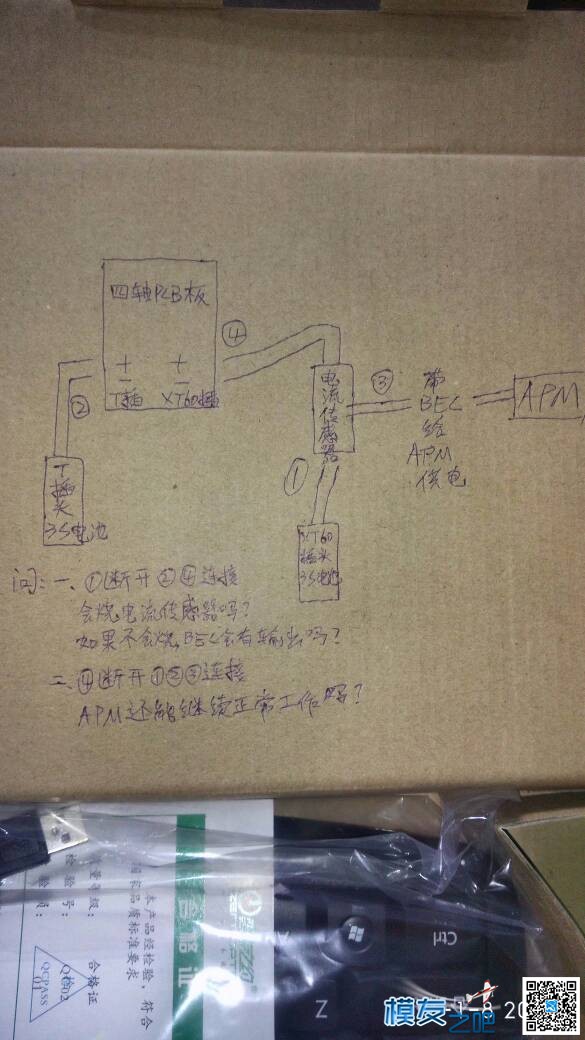 四轴PCB板
④
+ +
- -
T插 XT60插
②
电流传感器
③
带
BEC
给
APM
供电
APM
①
T
插
头
3S电池
XT60
插头
3S电池
问:一、①断开②④连接
会烧电流传感器吗?
如果不会烧,BEC会有输出吗?
二、④断开①②③连接
APM还能继续正常工作吗?
合格证
本产品经检验,符合
国家品质标准要求
质量等级:合格证
检验号:
检验员:
Q检02
QCPASS
01
Ctrl
Z
模友之吧